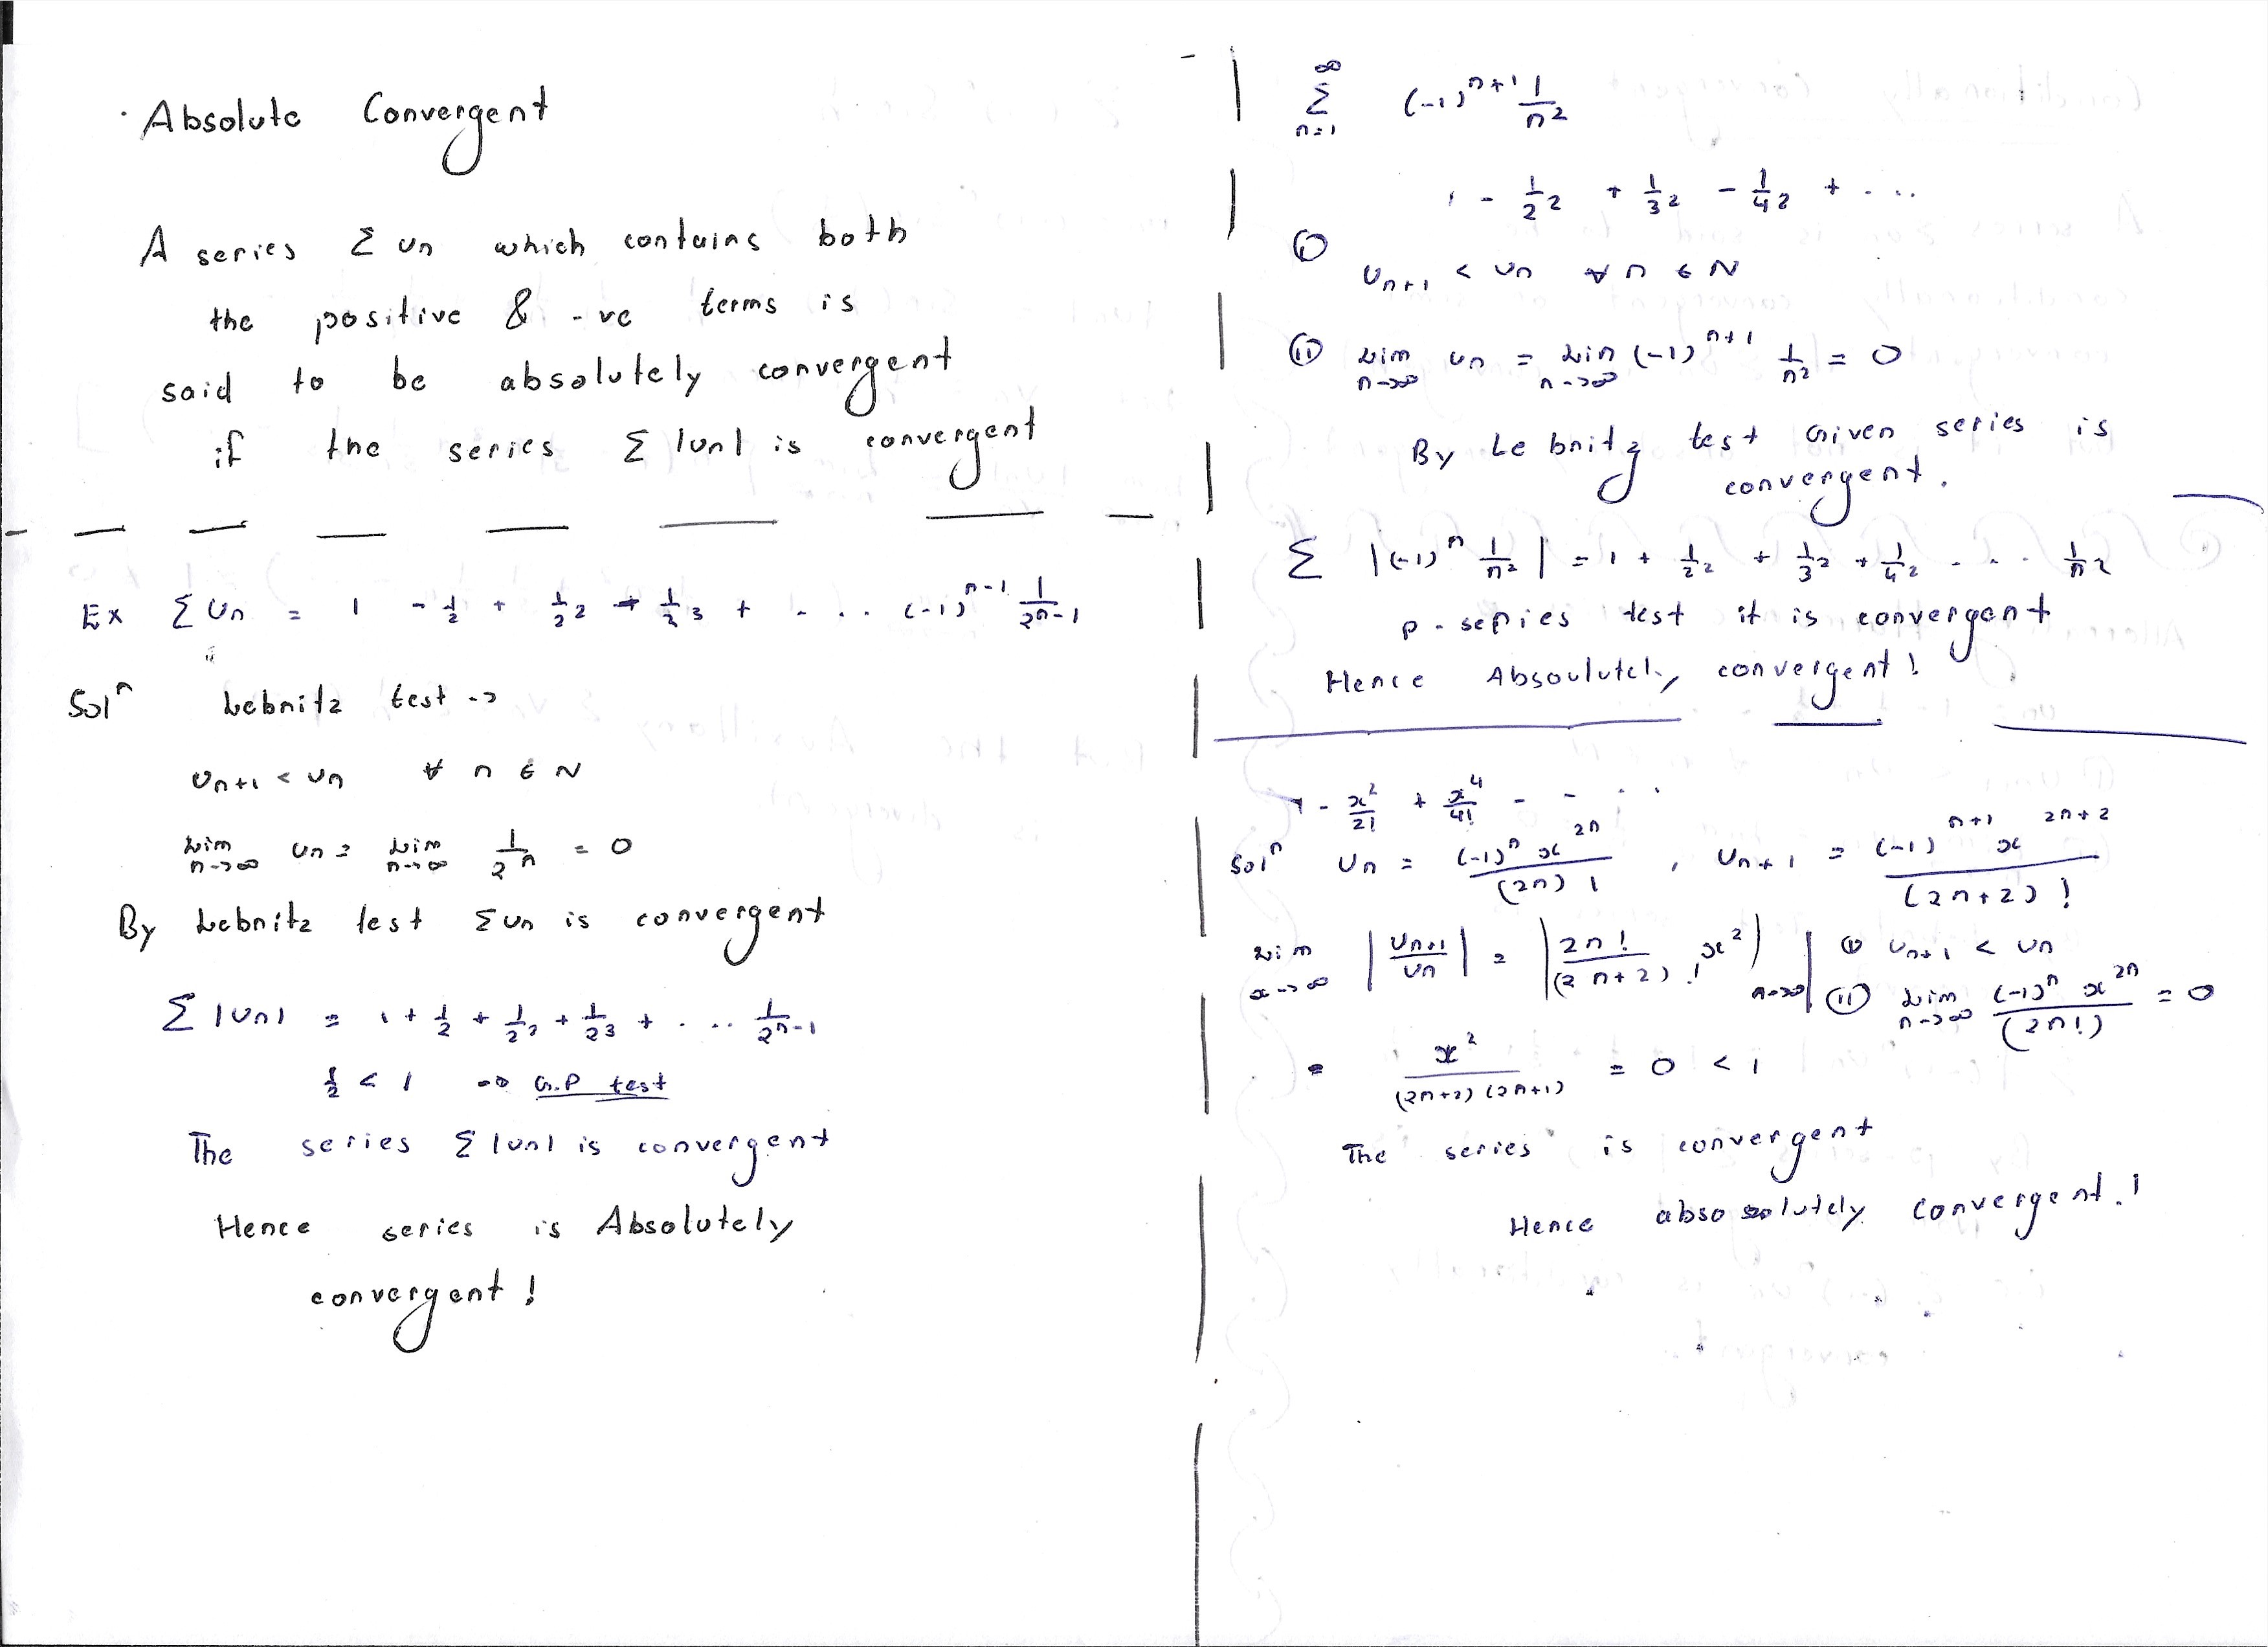 · Absolute Convergent
A series Σ un which contains both
the positive & -ve terms is
said to be absolutely convergent
if the series Σ |un| is convergent
Ex Σ Un = 1 - 1/2 + 1/2² - 1/2³ + . . . (-1)ⁿ⁻¹ 1/2ⁿ⁻¹
Solⁿ Lebnitz test ->
Un+1 < Un ∀ n ∈ N
Lim n->∞ Un = Lim n->∞ 1/2ⁿ = 0
By Lebnitz test Σun is convergent
Σ |Un| = 1 + 1/2 + 1/2² + 1/2³ + . . . . 1/2ⁿ⁻¹
1/2 < 1 -> G.P test
The series Σ |un| is convergent
Hence series is Absolutely
convergent !
∞ Σ n=1 (-1)ⁿ⁺¹ 1/n²
1 - 1/2² + 1/3² - 1/4² + . . . .
(i)
Un+1 < Un ∀ n ∈ N
(ii) Lim n->∞ un = Lim n->∞ (-1)ⁿ⁺¹ 1/n² = 0
By Lebnitz test Given series is
convergent.
Σ |(-1)ⁿ 1/n²| = 1 + 1/2² + 1/3² + 1/4² . . . 1/n²
p-series test it is convergent
Hence Absoulutely convergent !
1 - x²/2! + x⁴/4! - - . . .
Solⁿ Un = (-1)ⁿ x²ⁿ/(2n)! , Un+1 = (-1)ⁿ⁺¹ x²ⁿ⁺²/(2n+2)!
Lim x->∞ |Un+1/Un| = |2n!/(2n+2)! x²| n->∞
(i) Un+1 < Un
(ii) Lim n->∞ (-1)ⁿ x²ⁿ/(2n!) = 0
= x²/(2n+2)(2n+1) = 0 < 1
The series is convergent
Hence absosolutely convergent.!